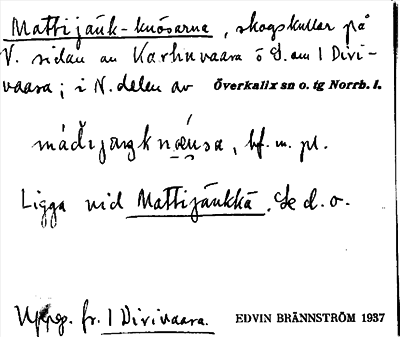 Mattijänk-knösarna, skogskullar på
V. sidan av Karhuvaara ö S. om 1 Divi-
vaara; i N. delen av Överkalix sn o. tg Norrb. l.
Ligga vid Mattijänkkä. Se d. o.
Uppg. fr. 1 Dirivaara. EDVIN BRÄNNSTRÖM 1937